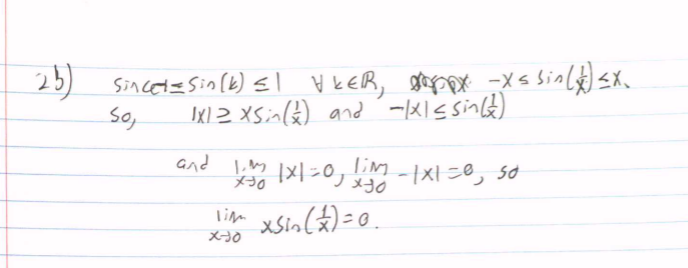 2b) Since -1 ≤ sin(k) ≤ 1 ∀ k∈ℝ, -x ≤ sin(1/x) ≤ x.
So, |x| ≥ x sin(1/x) and -|x| ≤ sin(1/x)
and lim x→0 |x| = 0, lim x→0 -|x| = 0, so
lim x→0 x sin(1/x) = 0.